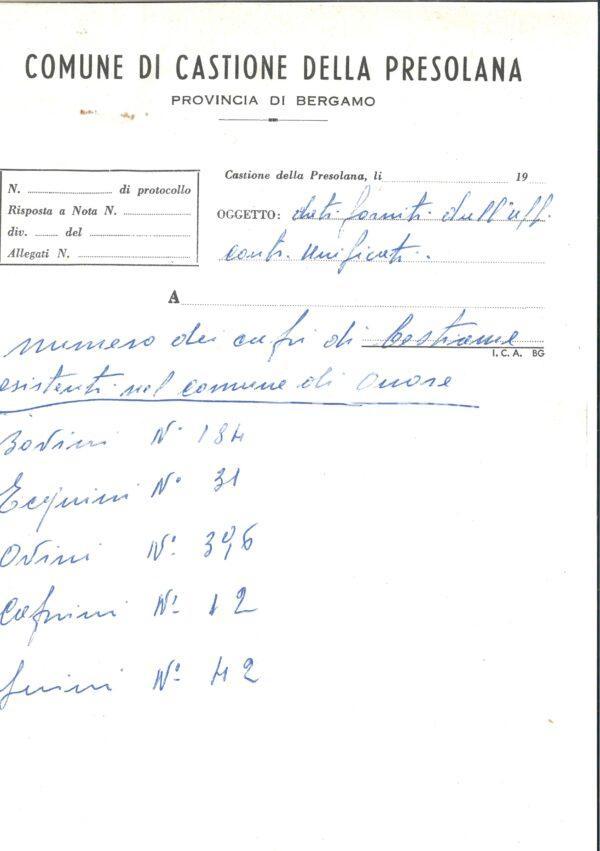 COMUNE DI CASTIONE DELLA PRESOLANA
PROVINCIA DI BERGAMO
N. di protocollo
Risposta a Nota N.
div. del
Allegati N.
Castione della Presolana, li 19
OGGETTO: dati forniti dall'uff.
contr. Unificati.
A
numero dei capi di bestiame
I.C.A. BG
esistenti nel comune di Onore
Bovini N° 184
Equini N° 31
Ovini N° 396
Caprini N° 12
Suini N° 42